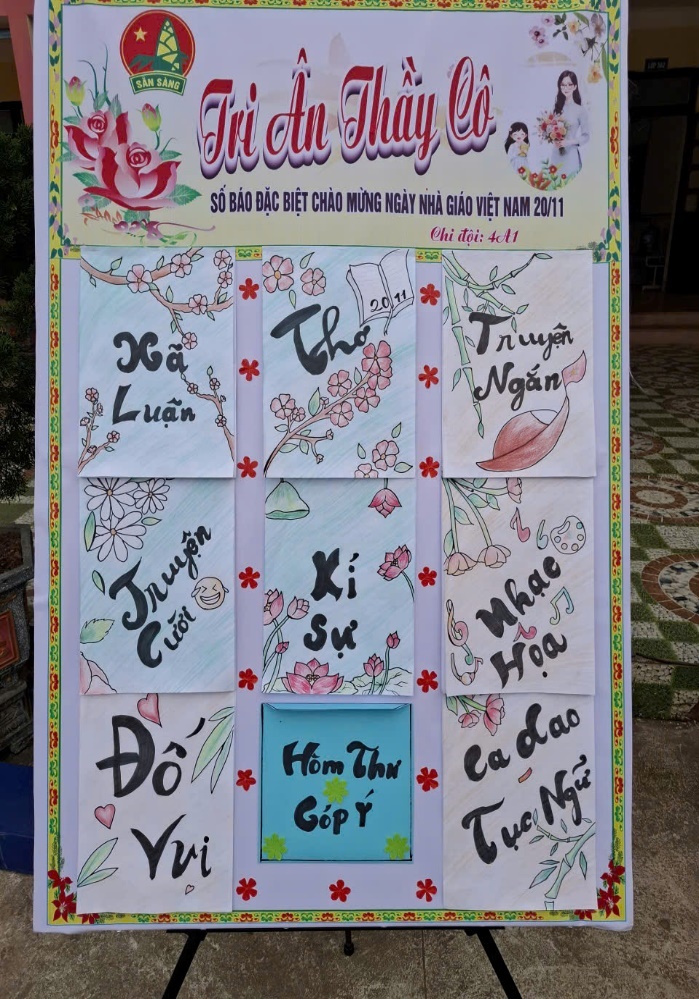 SẴN SÀNG
Tri Ân Thầy Cô
SỐ BÁO ĐẶC BIỆT CHÀO MỪNG NGÀY NHÀ GIÁO VIỆT NAM 20/11
Chi đội: 4A1
Xã
Luận
Thơ
20 11
Truyện
Ngắn
Truyện
Cười
Kí
Sự
Nhạc
Họa
Đố
Vui
Hòm Thư
Góp Ý
Ca dao
Tục Ngữ